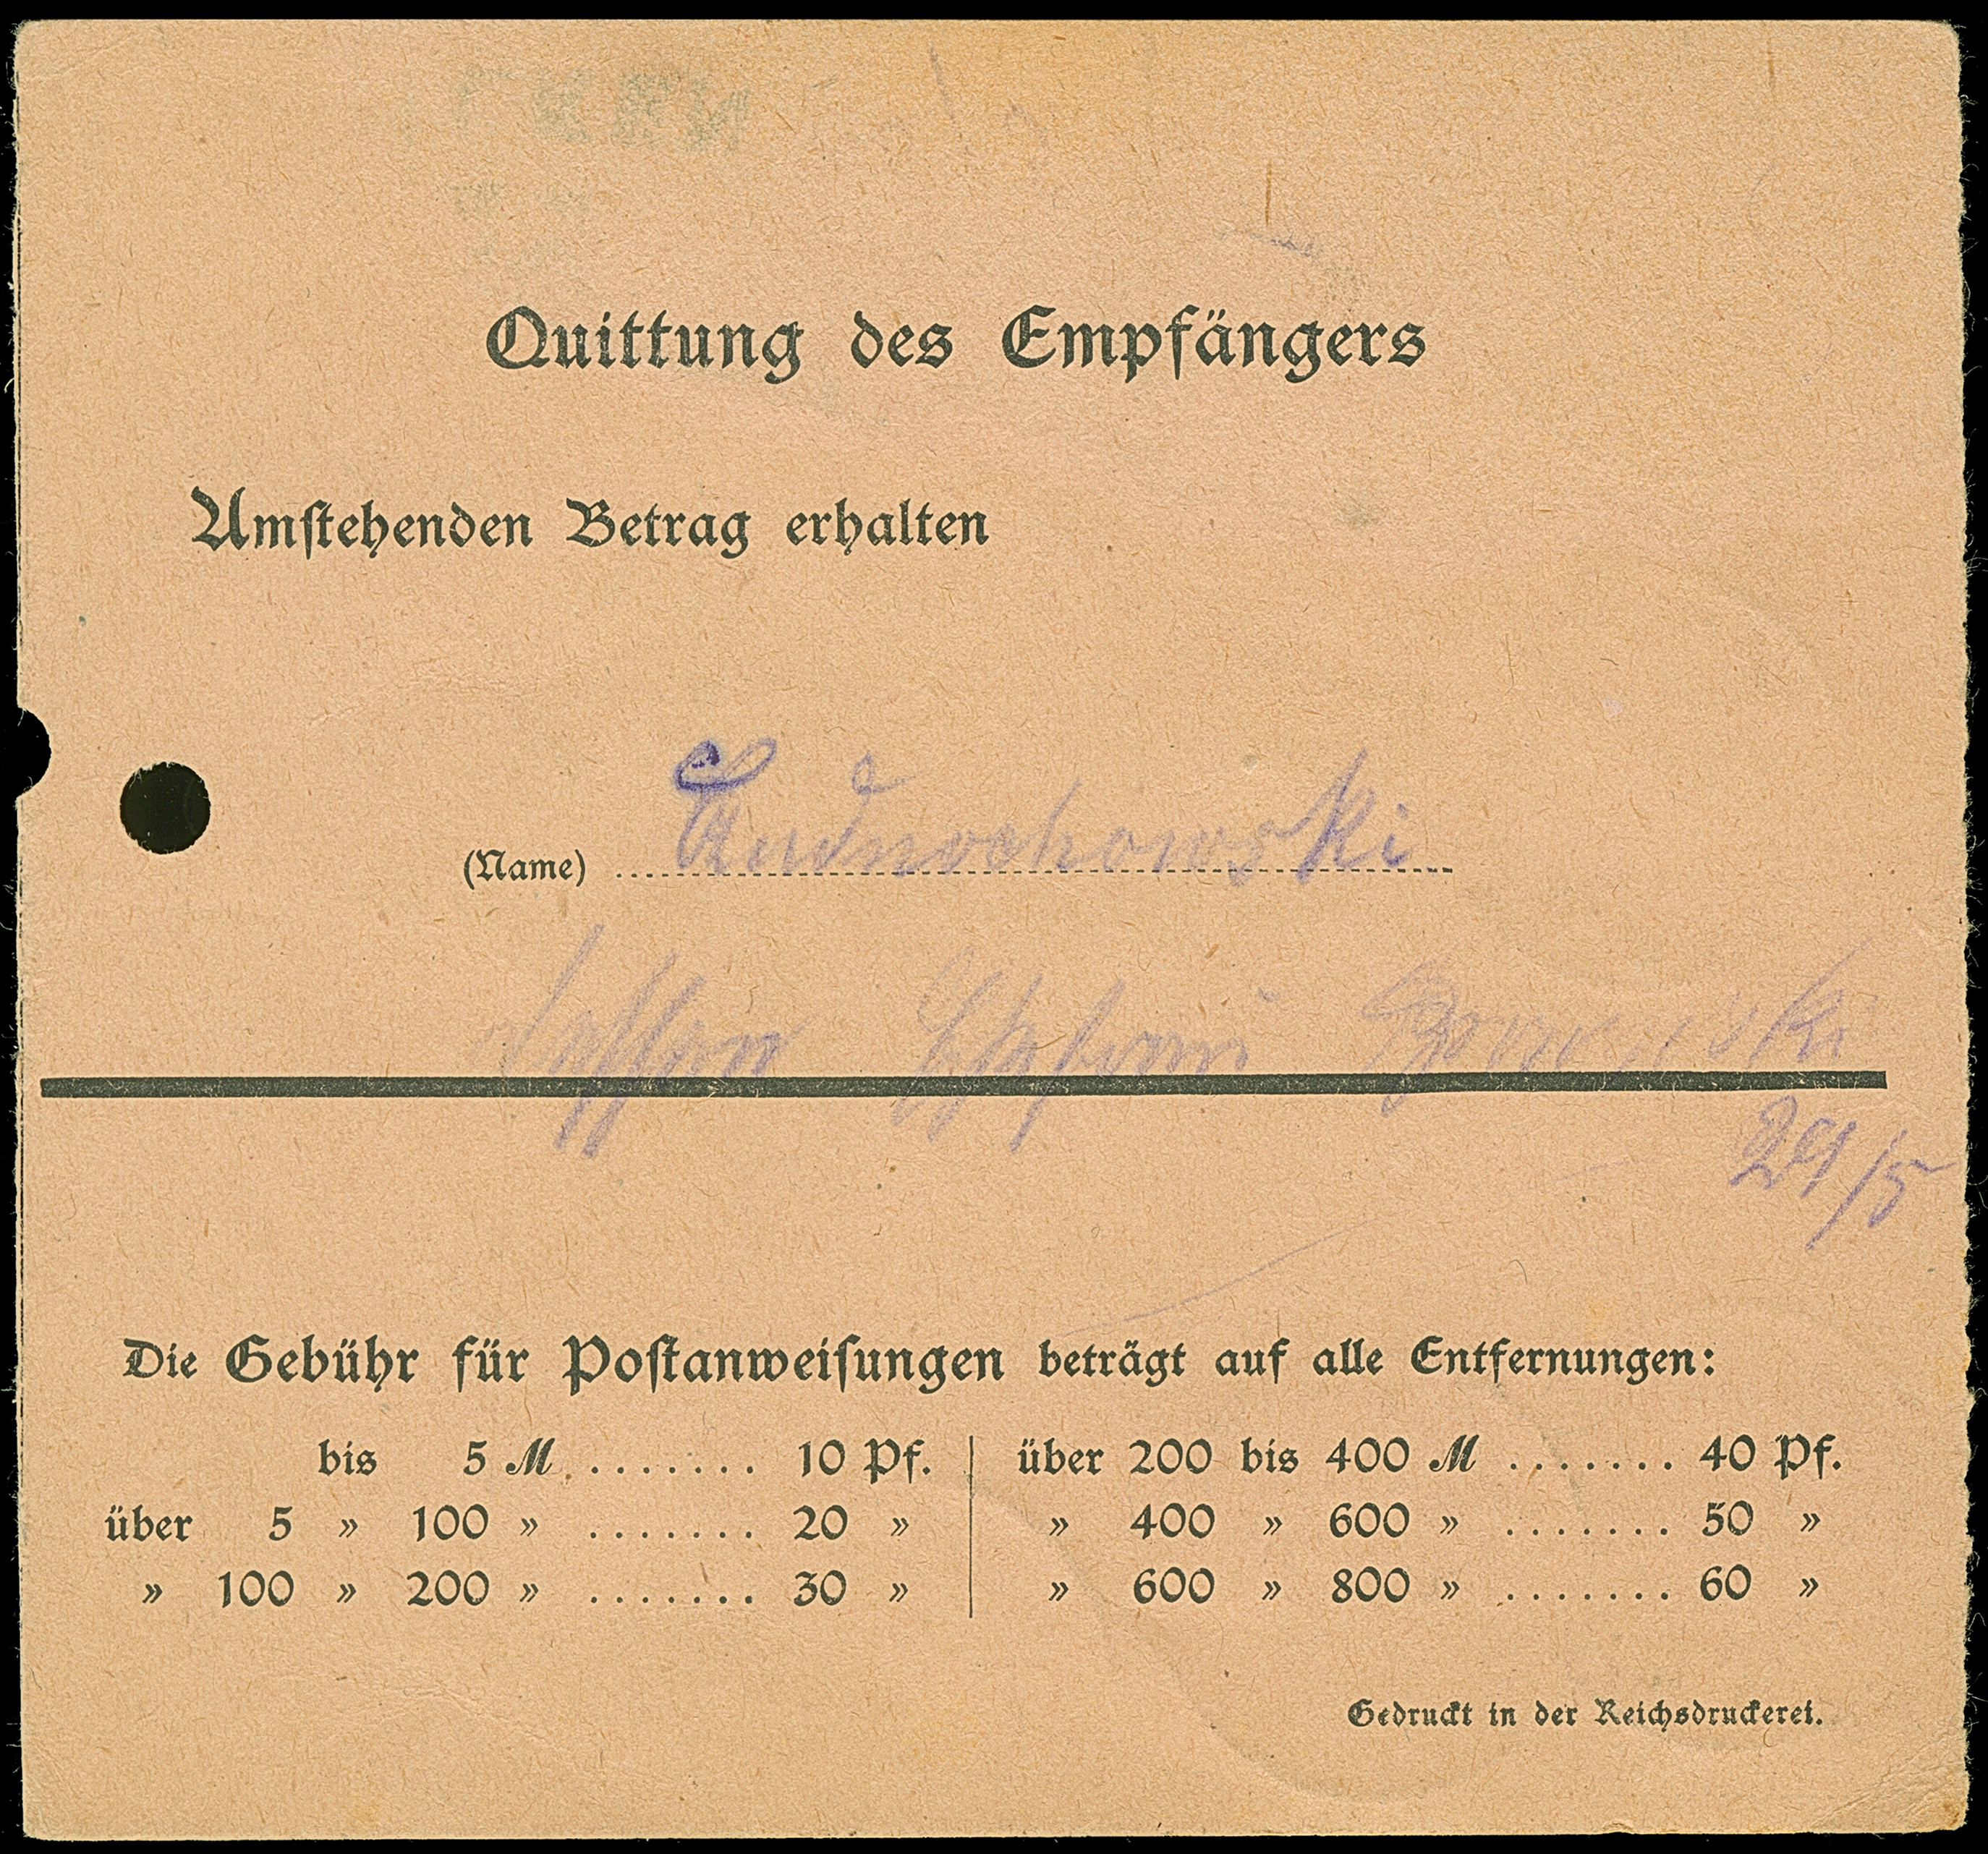 Quittung des Empfängers
Umſtehenden Betrag erhalten
(Name)
29/5
Die Gebühr für Poſtanweiſungen beträgt auf alle Entfernungen:
bis 5 ℳ ....... 10 Pf. | über 200 bis 400 ℳ ....... 40 Pf.
über 5 » 100 » ....... 20 » | » 400 » 600 » ....... 50 »
» 100 » 200 » ....... 30 » | » 600 » 800 » ....... 60 »
Gedruckt in der Reichsdruckerei.